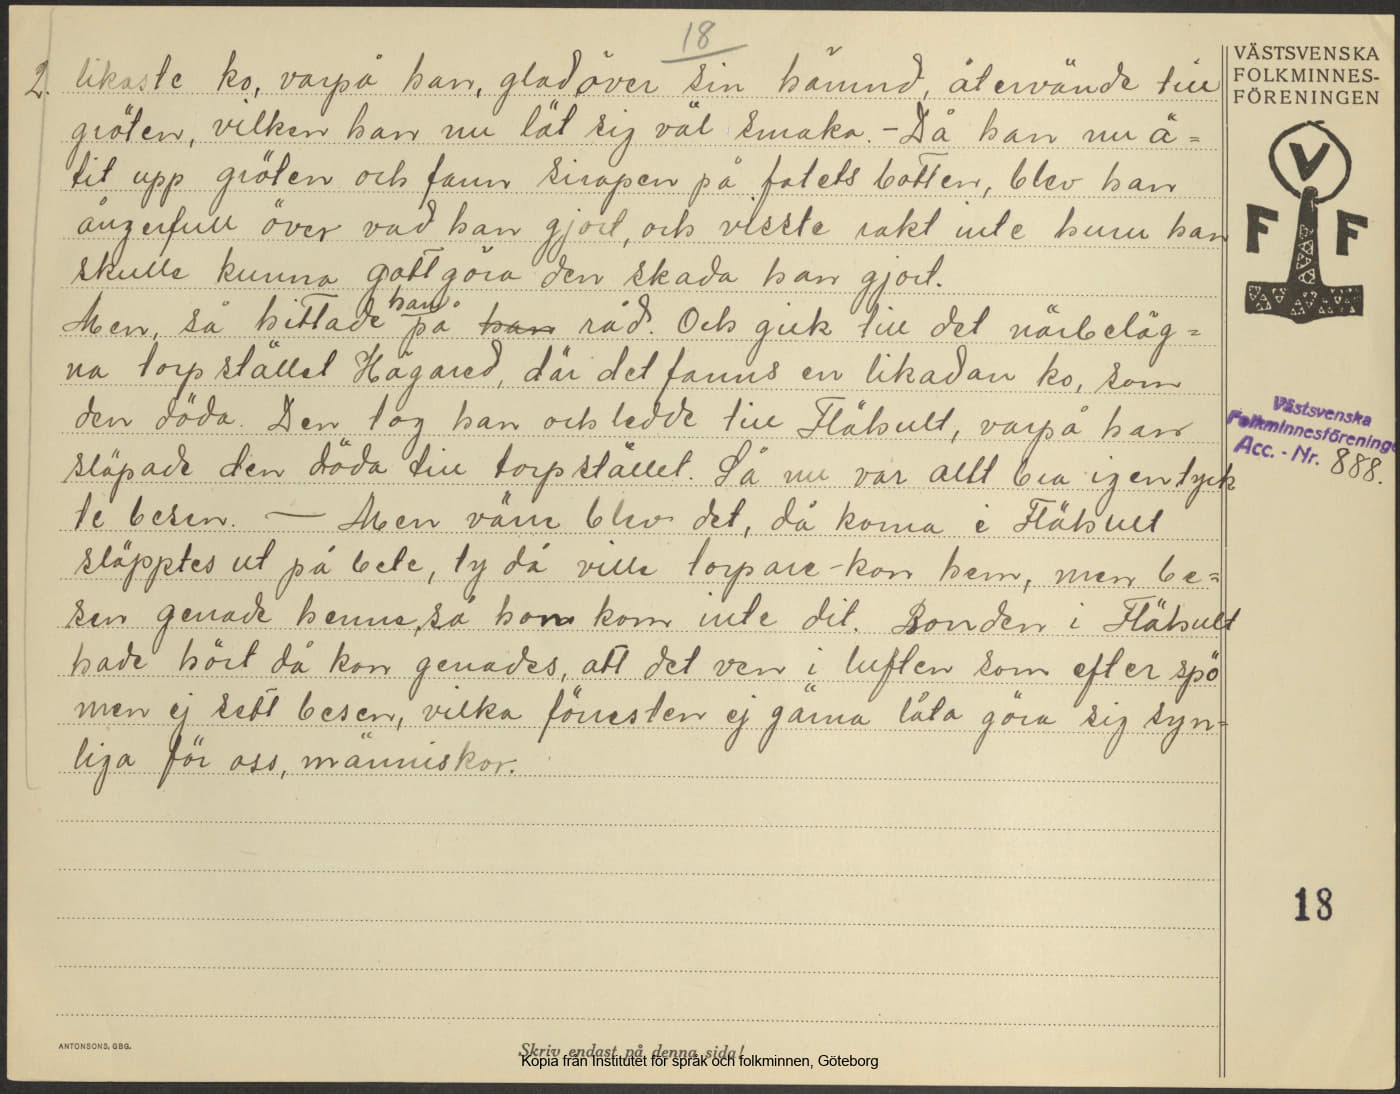 18
2. likaste ko, varpå han, glad över sin hämnd, återvände till
gröten, vilken han nu lät sig väl smaka. - Då han nu ä=
tit upp gröten och fann sirapen på fatets botten, blev han
ångerfull över vad han gjort, och visste rakt inte huru han
skulle kunna gottgöra den skada han gjort.
Men, så hittade han på han råd. Och gick till det närbeläg=
na torpstället Hägared, där det fanns en likadan ko, som
den döda. Den tog han och ledde till Flähult, varpå han
släpade den döda till torpstället. Så nu var allt bra igen tyck
te besen. — Men värre blev det, då korna i Flähult
släpptes ut på bete, ty då ville torpare-kon hem, men be=
sen genade henne, så hon kom inte dit. Bonden i Flähult
hade hört då kon genades, att det ven i luften som efter spö
men ej sett besen, vilka förresten ej gärna låta göra sig syn=
liga för oss, människor.
VÄSTSVENSKA
FOLKMINNES-
FÖRENINGEN
V
F F
Västsvenska
Folkminnesföreningen
Acc. - Nr. 888.
18
ANTONSONS, GBG.
Skriv endast på denna sida!
Kopia från Institutet för språk och folkminnen, Göteborg